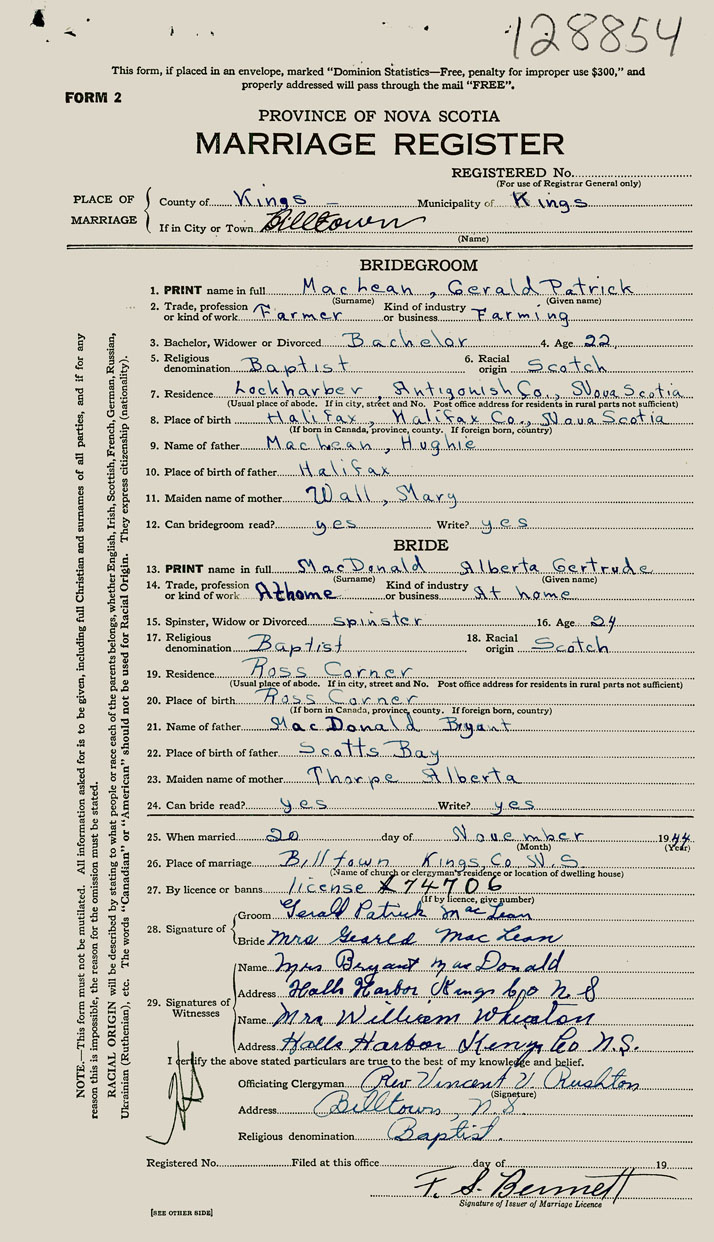 128854
This form, if placed in an envelope, marked "Dominion Statistics—Free, penalty for improper use $300," and
properly addressed will pass through the mail "FREE".
FORM 2
PROVINCE OF NOVA SCOTIA
MARRIAGE REGISTER
REGISTERED No.
(For use of Registrar General only)
PLACE OF MARRIAGE
County of Kings — Municipality of Kings
If in City or Town Billtown
(Name)
BRIDEGROOM
1. PRINT name in full MacLean, Gerald Patrick
(Surname) (Given name)
2. Trade, profession or kind of work Farmer Kind of industry or business Farming
3. Bachelor, Widower or Divorced Bachelor 4. Age 22
5. Religious denomination Baptist 6. Racial origin Scotch
7. Residence Lockharber, Antigonish Co., Nova Scotia
(Usual place of abode. If in city, street and No. Post office address for residents in rural parts not sufficient)
8. Place of birth Halifax, Halifax Co., Nova Scotia
(If born in Canada, province, county. If foreign born, country)
9. Name of father MacLean, Hughie
10. Place of birth of father Halifax
11. Maiden name of mother Wall, Mary
12. Can bridegroom read? yes Write? yes
BRIDE
13. PRINT name in full MacDonald Alberta Gertrude
(Surname) (Given name)
14. Trade, profession or kind of work At home Kind of industry or business At home
15. Spinster, Widow or Divorced spinster 16. Age 24
17. Religious denomination Baptist 18. Racial origin Scotch
19. Residence Ross Corner
(Usual place of abode. If in city, street and No. Post office address for residents in rural parts not sufficient)
20. Place of birth Ross Corner
(If born in Canada, province, county. If foreign born, country)
21. Name of father MacDonald Bryant
22. Place of birth of father Scotts Bay
23. Maiden name of mother Thorpe Alberta
24. Can bride read? yes Write? yes
25. When married 20 day of November 1944
(Month) (Year)
26. Place of marriage Billtown Kings, Co N.S.
(Name of church or clergyman's residence or location of dwelling house)
27. By licence or banns license 74706
(If by licence, give number)
28. Signature of
Groom Gerald Patrick MacLean
Bride Mrs Geareld MacLean
29. Signatures of Witnesses
Name Mrs Bryant MacDonald
Address Halls Harbor Kings Co N S
Name Mrs William Wheaton
Address Halls Harbor Kings Co N.S.
I certify the above stated particulars are true to the best of my knowledge and belief.
Officiating Clergyman Rev Vincent V. Rushton
(Signature)
Address Billtown, N.S.
Religious denomination Baptist.
Registered No. Filed at this office day of 19
F. S. Bennett
Signature of Issuer of Marriage Licence
[SEE OTHER SIDE]
NOTE.—This form must not be mutilated. All information asked for is to be given, including full Christian and surnames of all parties, and if for any
reason this is impossible, the reason for the omission must be stated.
RACIAL ORIGIN will be described by stating to what people or race each of the parents belongs, whether English, Irish, Scottish, French, German, Russian,
Ukrainian (Ruthenian), etc. The words "Canadian" or "American" should not be used for Racial Origin. They express citizenship (nationality).